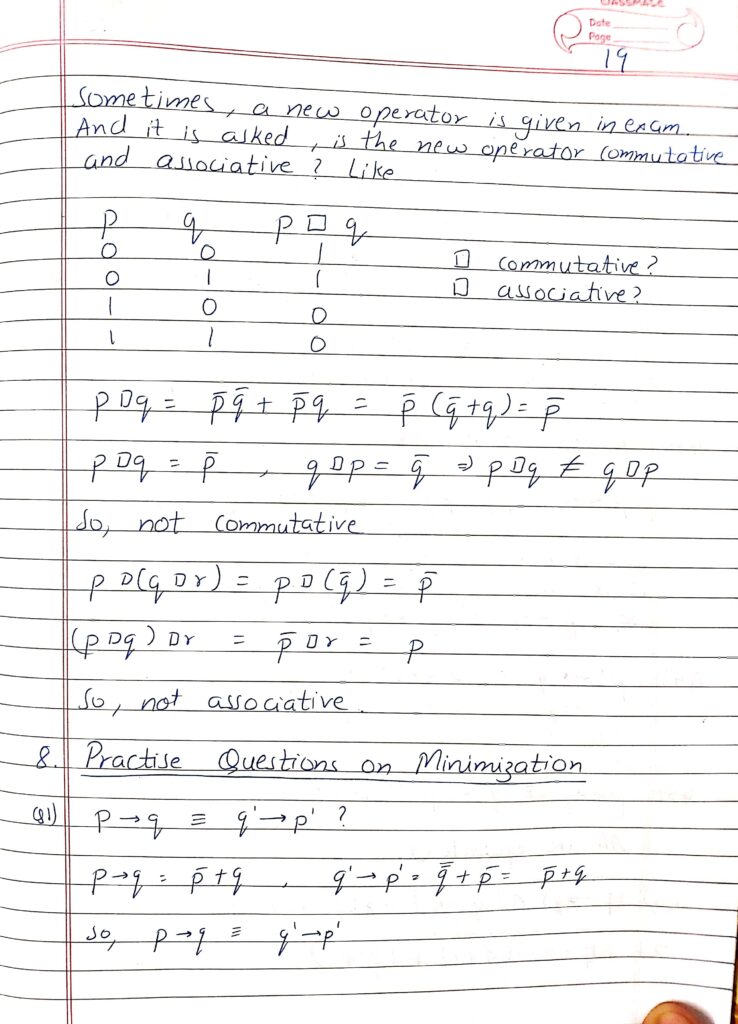 classmate
Date
Page
19
Sometimes, a new operator is given in exam.
And it is asked, is the new operator commutative
and associative? Like
p q p □ q
0 0 1
0 1 1
1 0 0
1 1 0
□ commutative?
□ associative?
p □ q = p̄q̄ + p̄q = p̄ (q̄+q) = p̄
p □ q = p̄ , q □ p = q̄ ⇒ p □ q ≠ q □ p
So, not commutative
p □ (q □ r) = p □ (q̄) = p̄
(p □ q) □ r = p̄ □ r = p
So, not associative.
8. Practise Questions on Minimization
Q1) p → q ≡ q' → p' ?
p → q = p̄ + q , q' → p' = q̿ + p̄ = p̄ + q
So, p → q ≡ q' → p'